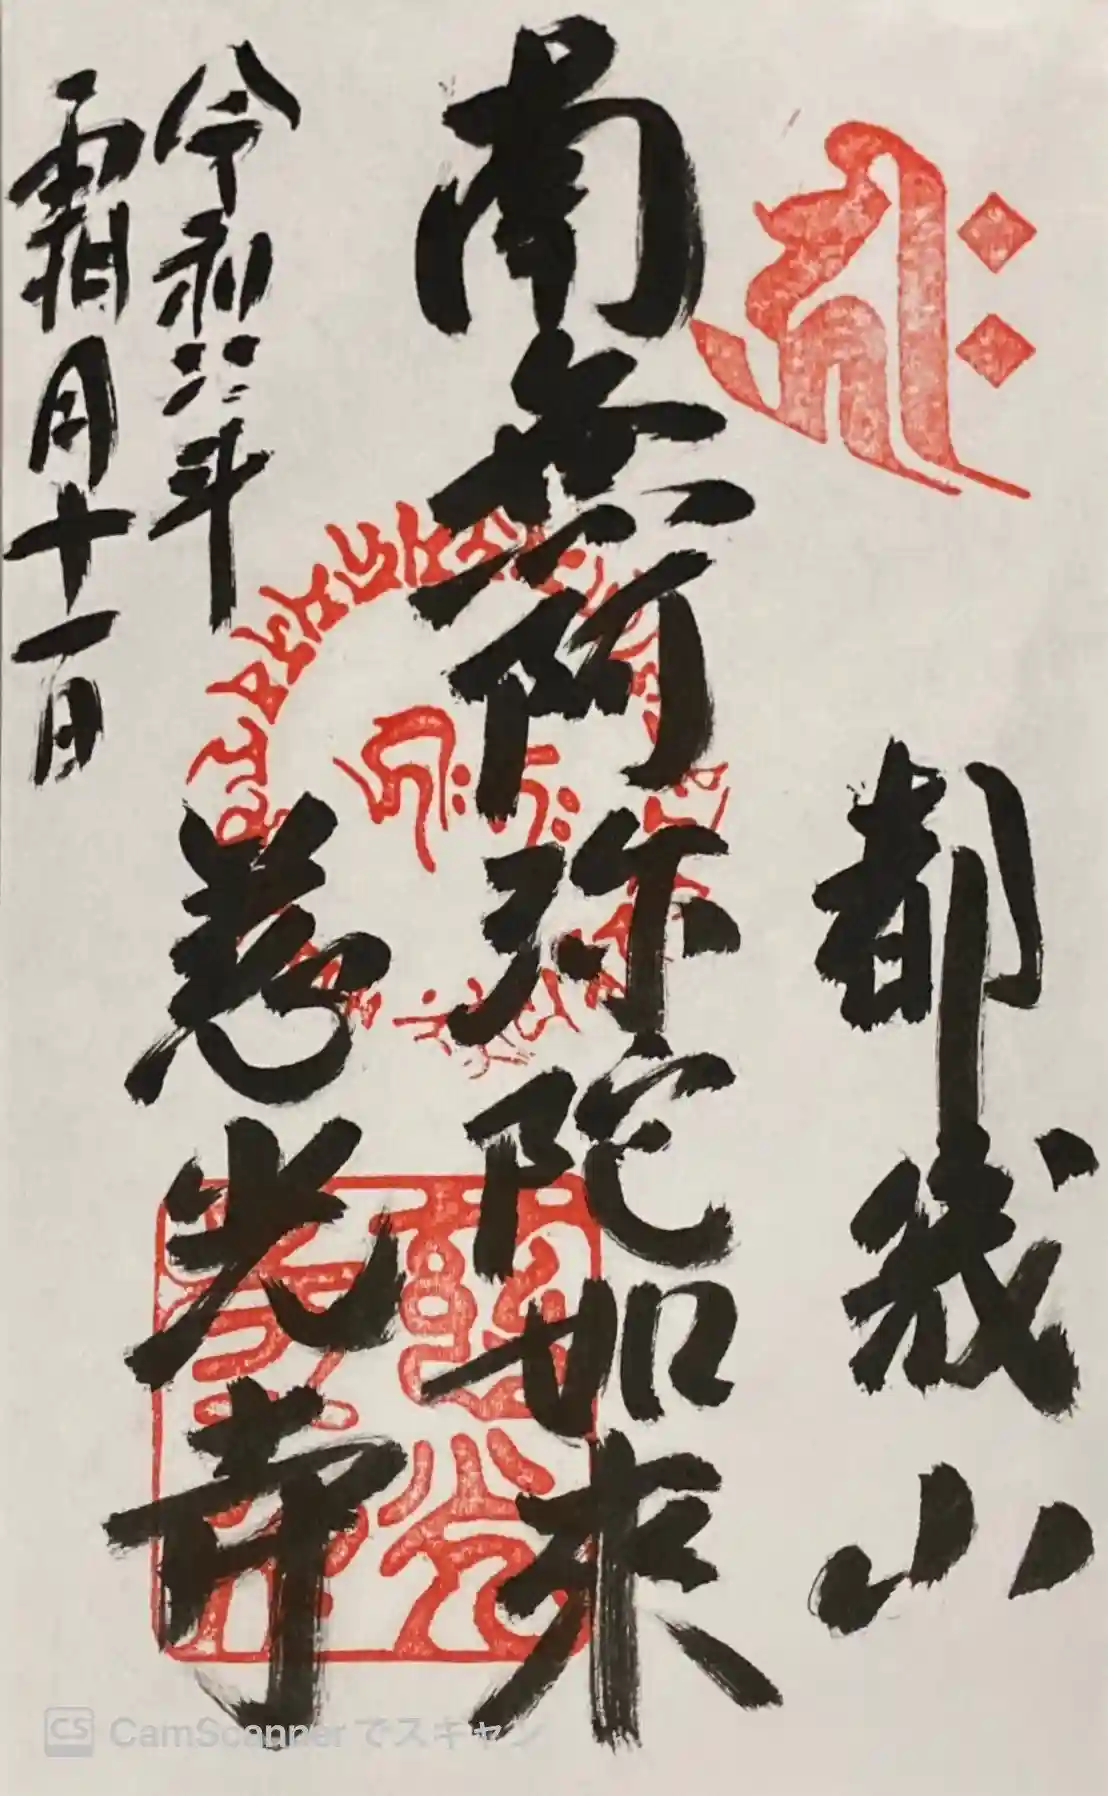 都幾山
南無阿弥陀如来
慈光寺
令和六年
霜月十一日
CS CamScannerでスキャン